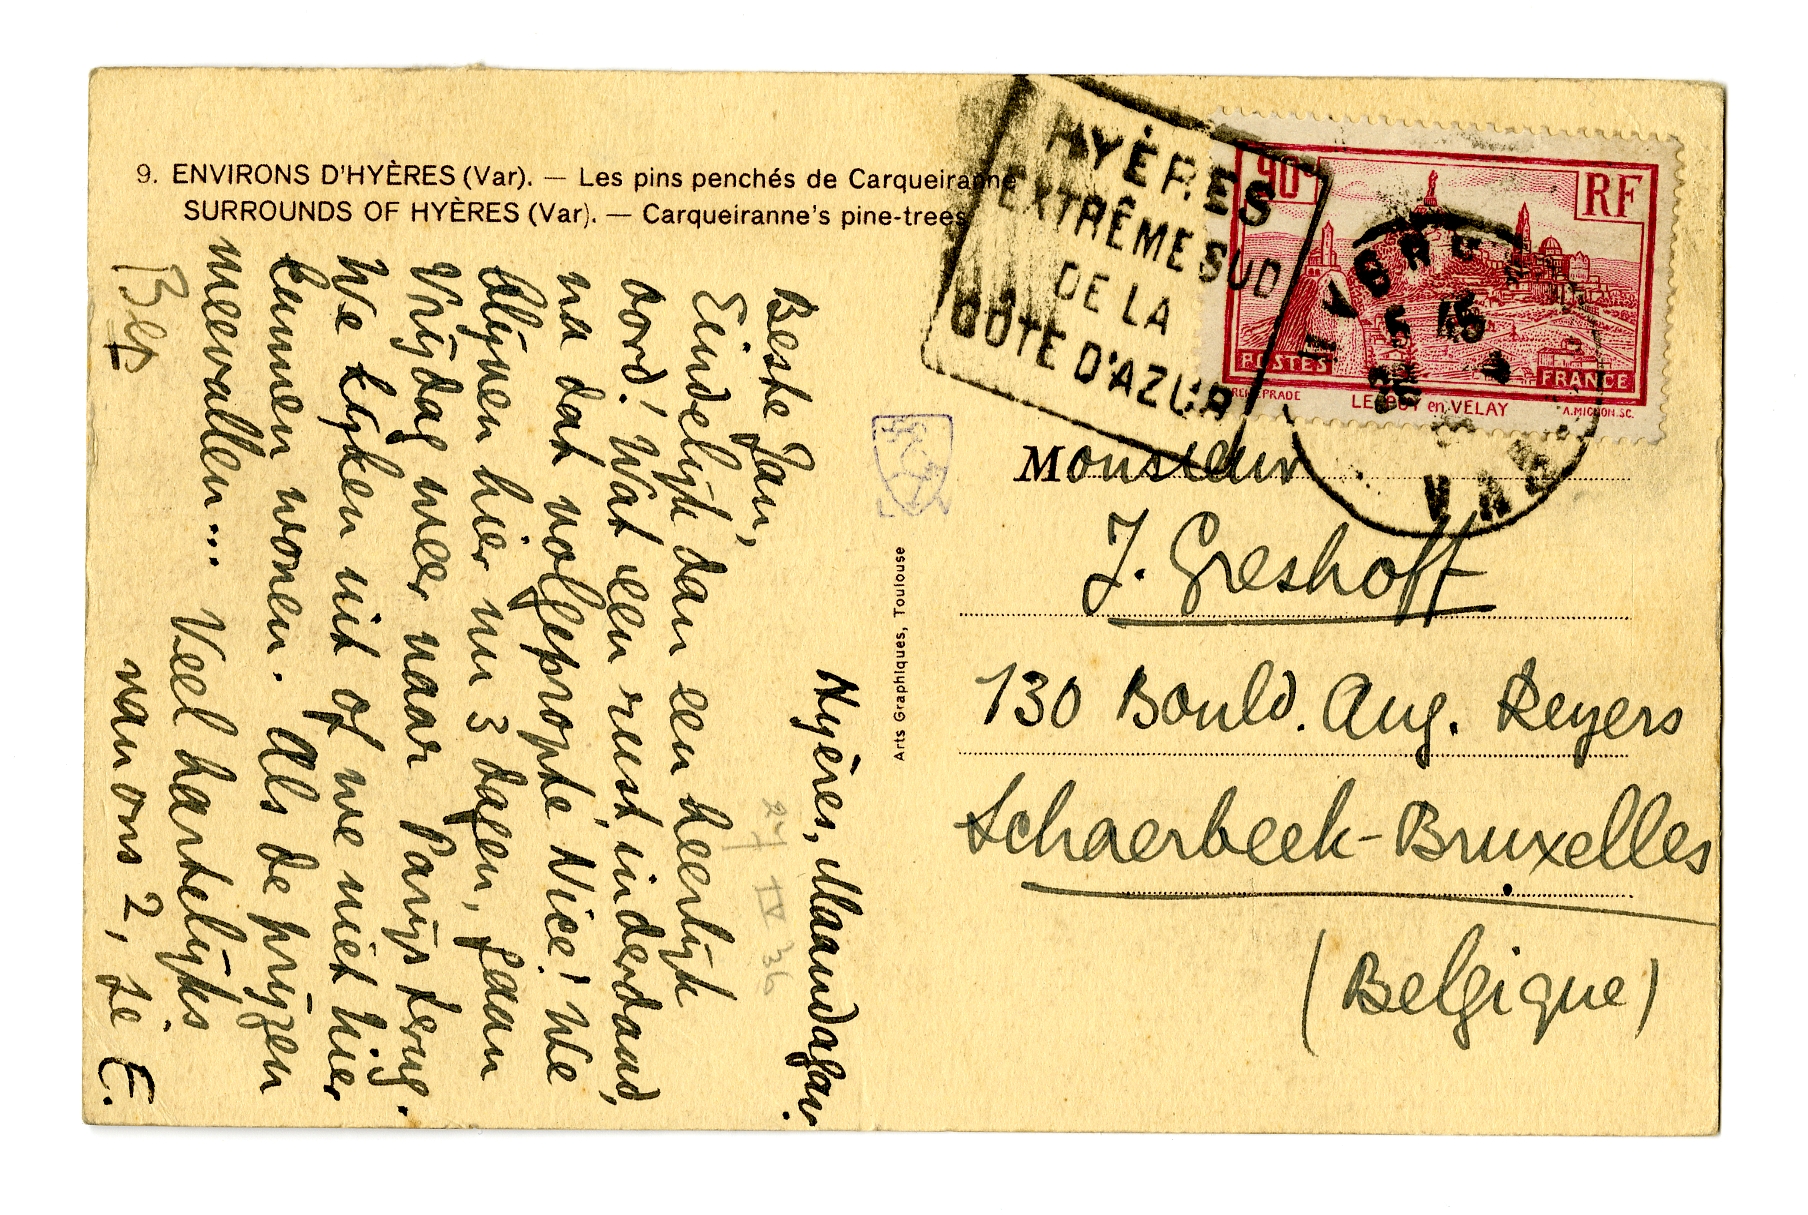 9. ENVIRONS D'HYÈRES (Var). — Les pins penchés de Carqueiranne
SURROUNDS OF HYÈRES (Var). — Carqueiranne's pine-trees
Hyères, Maandagav.
Beste Jan,
Eindelijk dan een heerlijk
oord! Wat een rust, inderdaad,
na dat volgepropte Nice! We
blijven hier nu 3 dagen, gaan
Vrijdag weer naar Parijs terug.
We kijken uit of we niet hier
kunnen wonen. Als de prijzen
meevallen... Veel hartelijks
van ons 2, je E.
27 IV 36
Arts Graphiques, Toulouse
HYÈRES
EXTRÊME SUD
DE LA
CÔTE D'AZUR
90c
RF
POSTES
FRANCE
LE PUY en VELAY
A. MIGNON. SC.
VAR
Monsieur
J. Greshoff
130 Bould. Aug. Reyers
Schaerbeek-Bruxelles
(Belgique)